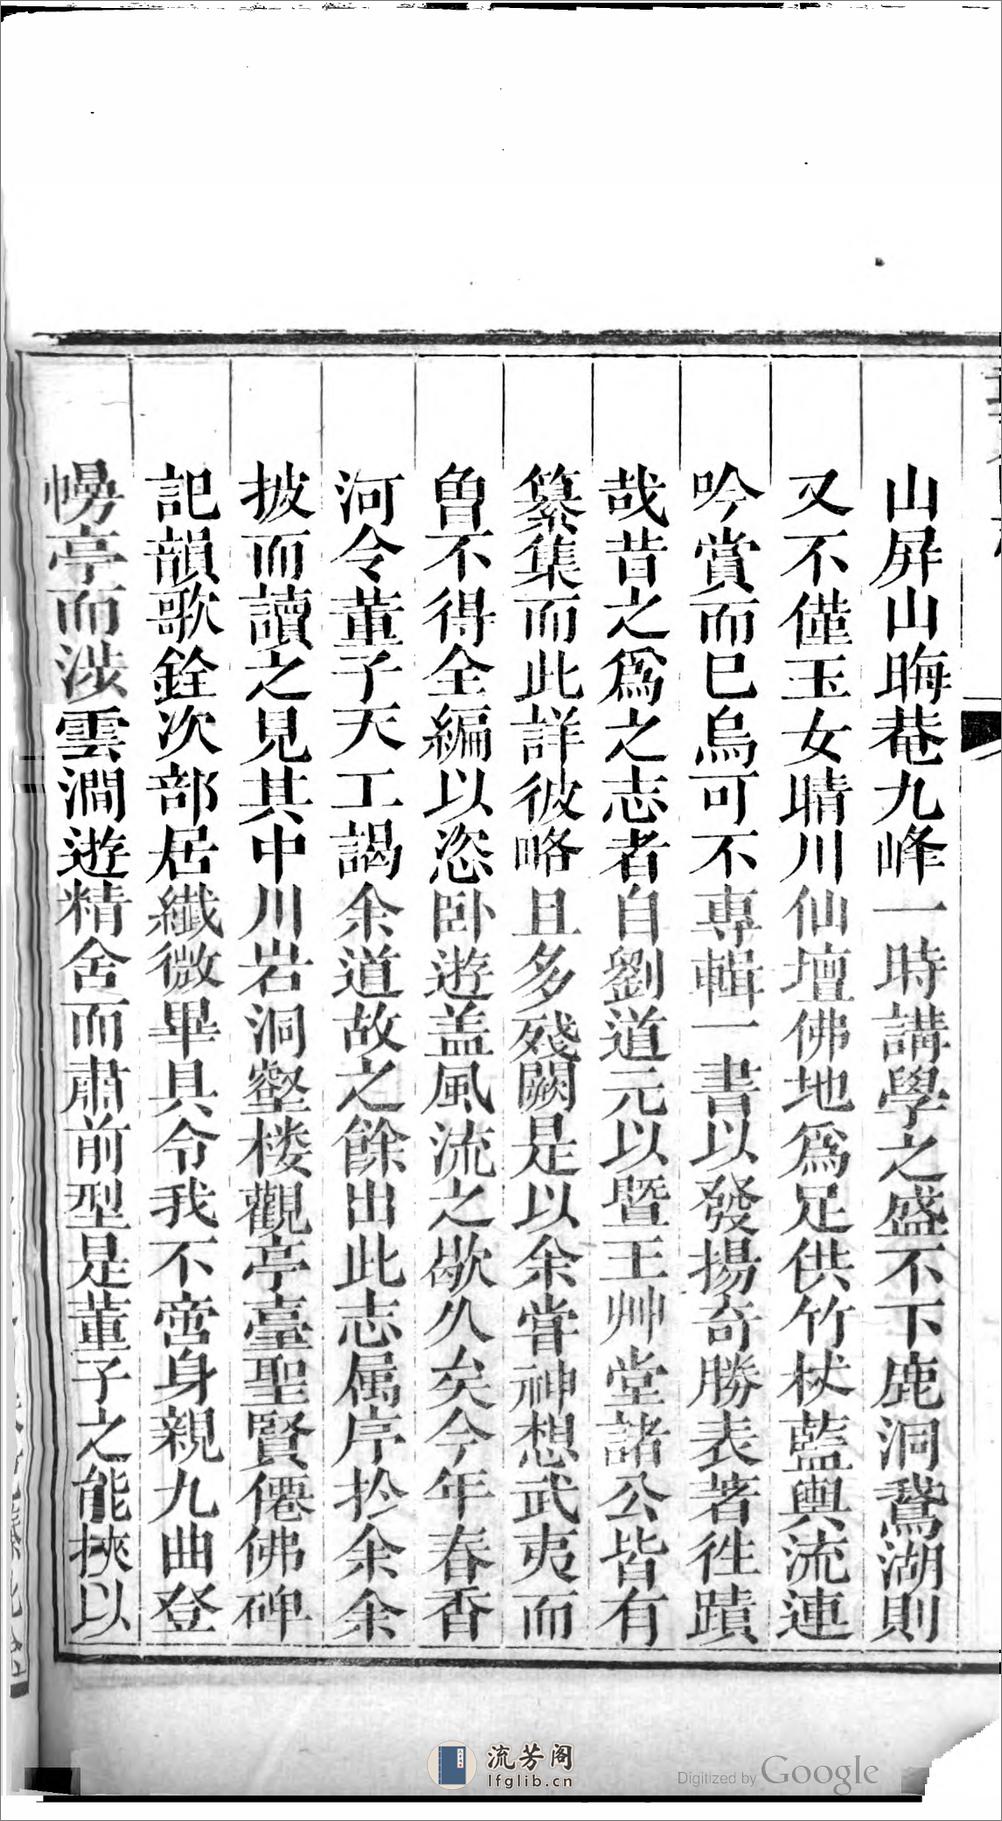 山屏山晦菴九峰一時講學之盛不下鹿洞鵞湖則
又不僅玉女晴川仙壇佛地爲足供竹杖藍輿流連
吟賞而已烏可不專輯一書以發揚奇勝表著徃蹟
哉昔之爲之志者自劉道元以暨王艸堂諸公皆有
纂集而此詳彼略且多殘闕是以余甞神想武夷而
曽不得全編以恣卧遊盖風流之歇久矣今年春香
河令董子天工謁余道故之餘出此志属序扵余余
披而讀之見其中川岩洞壑楼觀亭臺聖賢僊佛碑
記韻歌銓次部居纖微畢具令我不啻身親九曲登
幔亭而涉雲澗遊精舍而肅前型是董子之能挾以
流芳阁
lfglib.cn
Digitized by Google